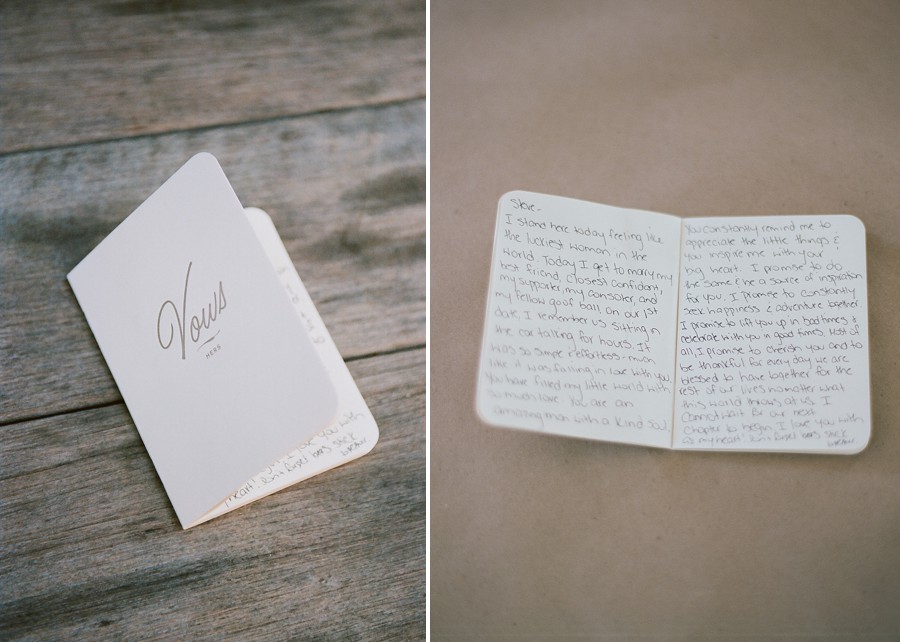 Vows
HERS
heart! Don't forget bees stick
together.
Steve-
I stand here today feeling like
the luckiest woman in the
world. Today I get to marry my
best friend, closest confidant,
my supporter, my consoler, and
my fellow goof ball. On our 1st
date, I remember us sitting in
the car talking for hours. It
was so simple & effortless - much
like it was falling in love with you.
You have filled my little world with
so much love. You are an
amazing man with a kind soul.
You constantly remind me to
appreciate the little things &
you inspire me with your
big heart. I promise to do
the same & be a source of inspiration
for you. I promise to constantly
seek happiness & adventure together.
I promise to lift you up in bad times &
celebrate with you in good times. Most of
all, I promise to cherish you and to
be thankful for every day we are
blessed to have together for the
rest of our lives no matter what
this world throws at us. I
cannot wait for our next
chapter to begin. I love you with
all my heart! Don't forget bees stick
together.